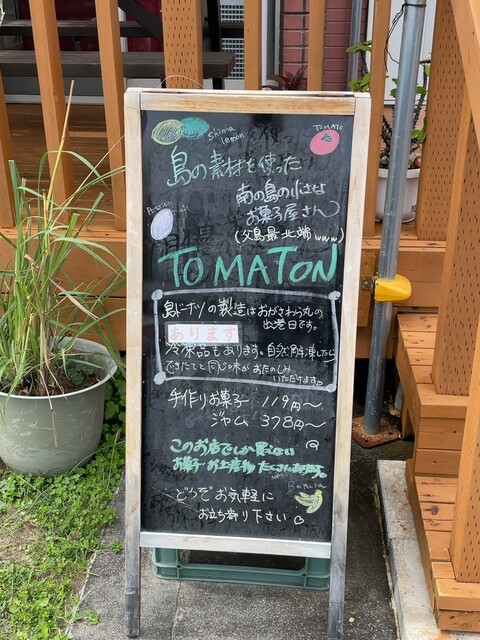 Shima lemon
TOMATO
島の素材を使った
Passion
南の島の小さな
お菓子屋さん
(父島最北端www)
TOMATON
島ドーナツの製造はおがさわら丸の
出港日です。
あります
冷凍品もあります。自然解凍したら
できたてと同じ味がおたのしみ
いただけます
手作りお菓子 119円〜
ジャム 378円〜
@
このお店でしか買えない
お菓子・お土産物たくさんあります
Banana
どうぞお気軽に
お立ち寄り下さい